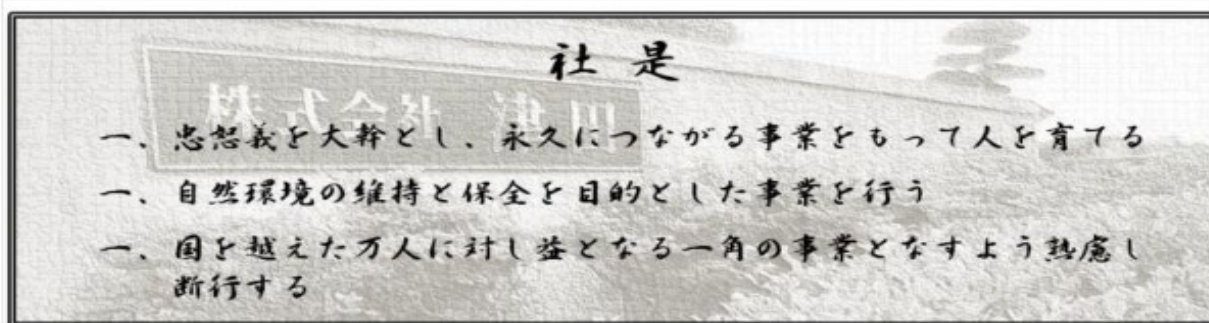 社是
一、忠恕義を大幹とし、永久につながる事業をもって人を育てる
一、自然環境の維持と保全を目的とした事業を行う
一、国を越えた万人に対し益となる一角の事業となすよう熟慮し
断行する